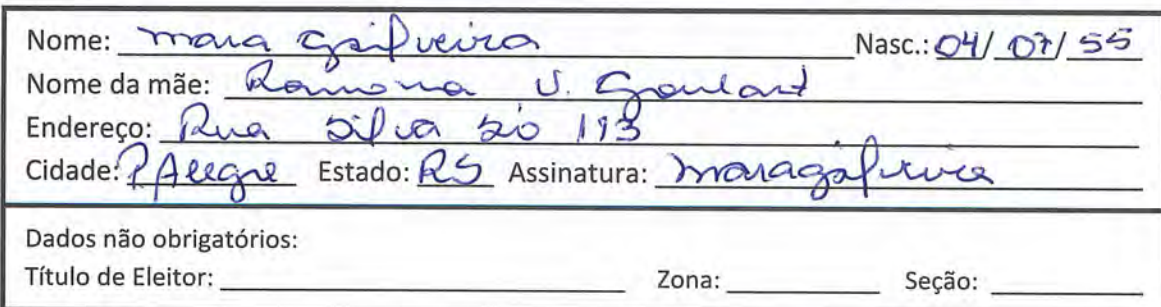 Nome: Mara G Silveira Nasc.: 04/07/55
Nome da mãe: Ramona V. Goulart
Endereço: Rua Silva Só 193
Cidade: P Alegre Estado: RS Assinatura: Maragsilveira
Dados não obrigatórios:
Título de Eleitor: Zona: Seção: